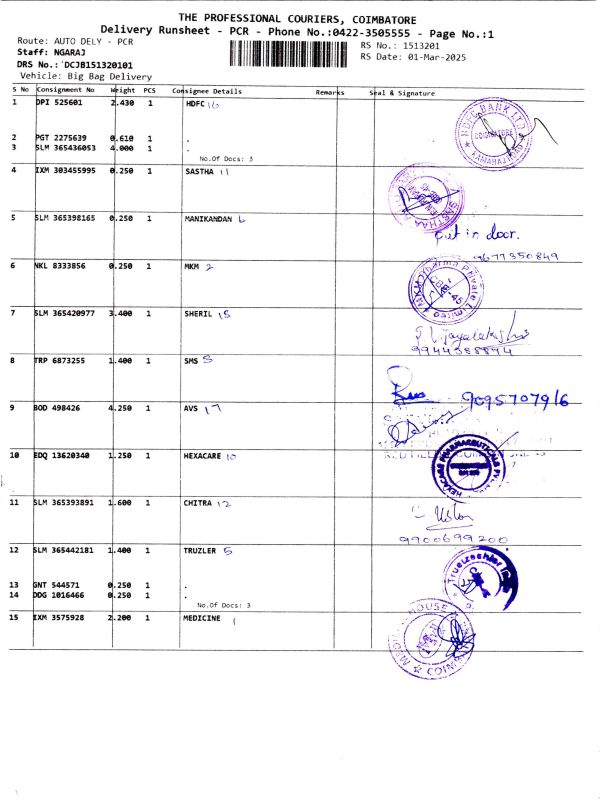 THE PROFESSIONAL COURIERS, COIMBATORE
Delivery Runsheet - PCR - Phone No.:0422-3505555 - Page No.:1
Route: AUTO DELY - PCR
RS No.: 1513201
Staff: NGARAJ
RS Date: 01-Mar-2025
DRS No.: DCJB151320101
Vehicle: Big Bag Delivery
S No Consignment No Weight PCS Consignee Details Remarks Seal & Signature
1 DPI 525601 2.430 1 HDFC 16
HDFC BANK LTD
COIMBATORE
2 PGT 2275639 0.610 1 .
3 SLM 365436053 4.000 1 .
No.Of Docs: 3
4 IXM 303455995 0.250 1 SASTHA 11
5 SLM 365398165 0.250 1 MANIKANDAN 6
put in door.
9677350849
6 NKL 8333856 0.250 1 MKM 2
Pharma Private Limited
7 SLM 365420977 3.400 1 SHERIL 15
9944388844
8 TRP 6873255 1.400 1 SMS 5
9095707916
9 BOD 498426 4.250 1 AVS 17
10 EDQ 13620340 1.250 1 HEXACARE 10
HEXACARE PHARMACEUTICALS PVT
11 SLM 365393891 1.600 1 CHITRA 12
9900699200
12 SLM 365442181 1.400 1 TRUZLER 5
Truetzschler
13 GNT 544571 0.250 1 .
14 DDG 1016466 0.250 1 .
No.Of Docs: 3
15 IXM 3575928 2.200 1 MEDICINE 1
HOUSE